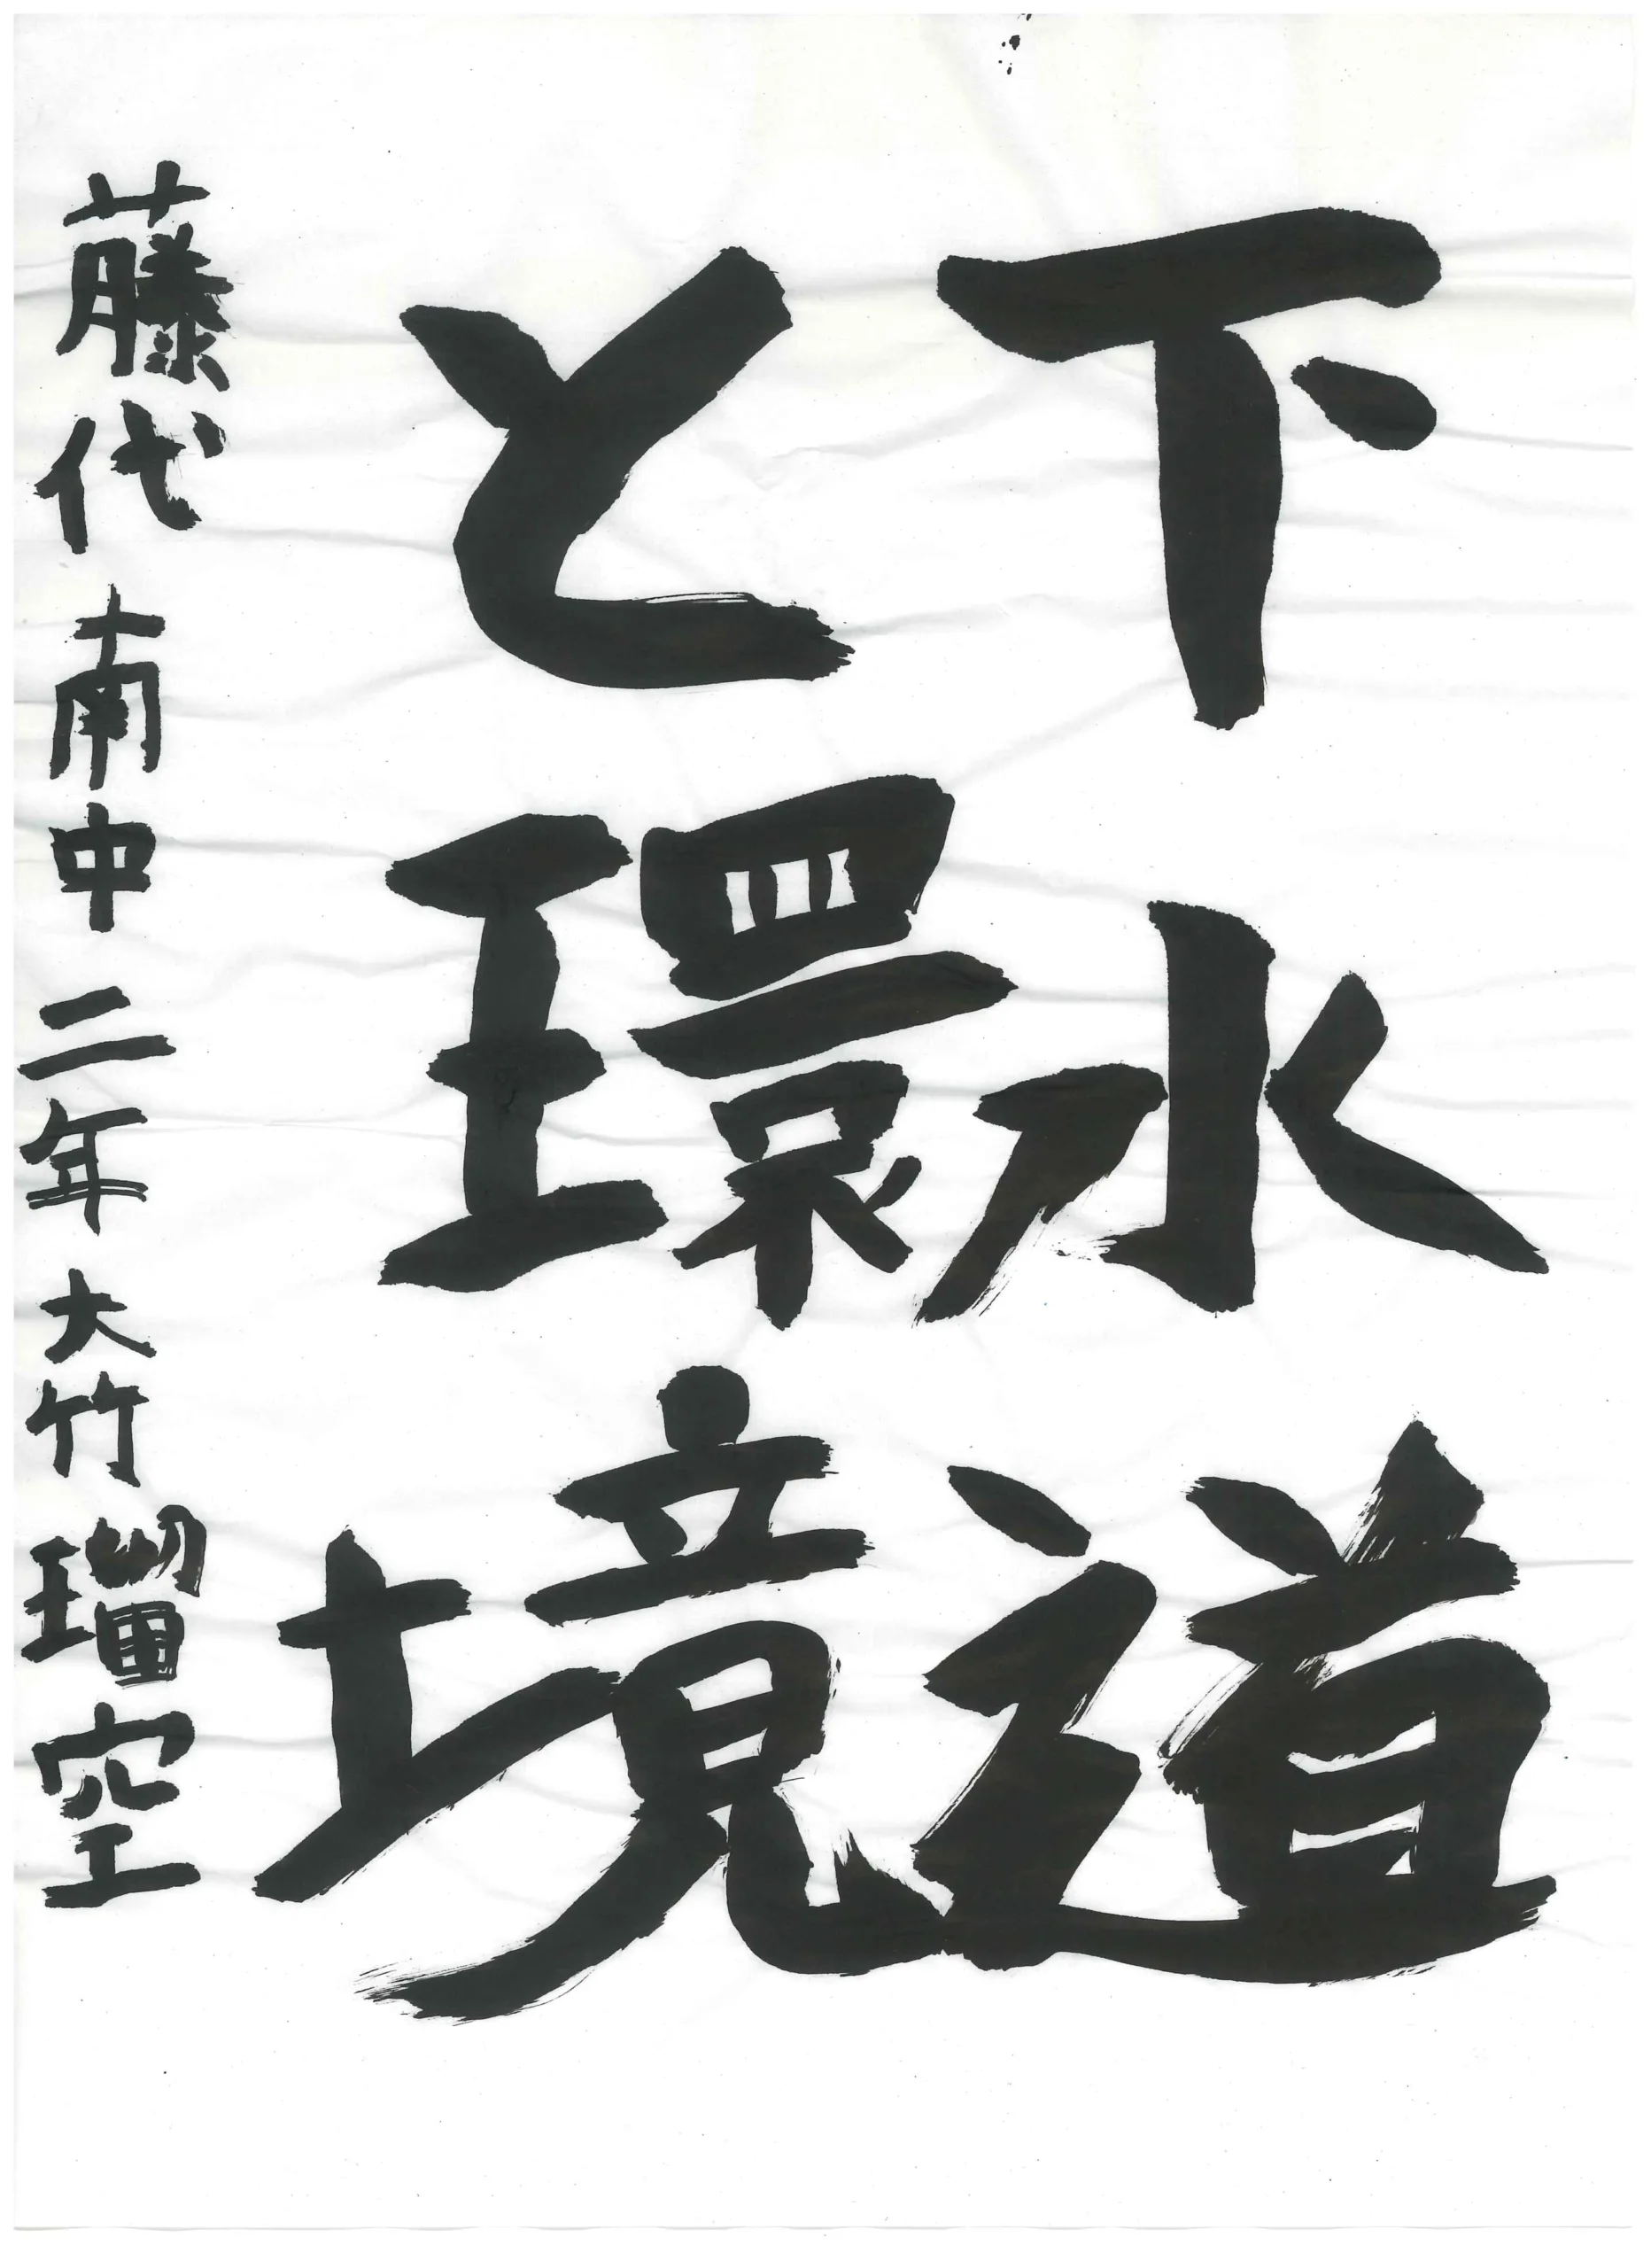 下水道
と環境
藤代南中二年大竹瑠空